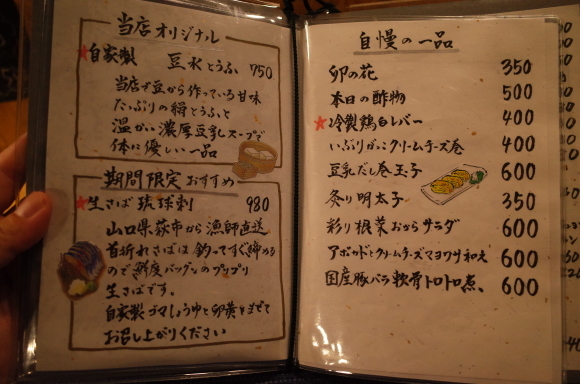 当店オリジナル
★自家製 豆水とうふ 750
当店で豆から作っている甘味
たっぷりの絹とうふと
温かい濃厚豆乳スープで
体に優しい一品
期間限定おすすめ
★生さば琉球刺 980
山口県萩市から漁師直送
首折れさばは釣ってすぐ締める
ので鮮度バツグンのプリプリ
生さばです。
自家製ゴマしょうゆと卵黄をまぜて
お召し上がりください
自慢の一品
卯の花 350
本日の酢物 500
★冷製鶏白レバー 400
いぶりがっこクリームチーズ巻 400
豆乳だし巻玉子 600
炙り明太子 350
彩り根菜おからサラダ 600
アボカドとクリームチーズマヨワサ和え 600
国産豚バラ軟骨トロトロ煮 600